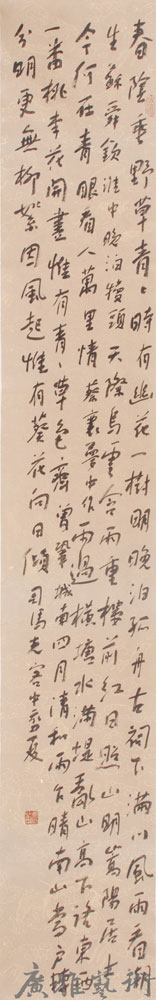 春陰垂野草青々時有幽花一樹明晚泊孤舟古祠下滿川風雨看潮
生蘇舜欽淮中晚泊犢頭天際烏雲含雨重樓前紅日照山明嵩陽居士
今何在青眼看人萬里情蔡襄夢中作雨過橫塘水滿堤亂山高下路東西
一番桃李花開盡惟有青々草色齊曾鞏城南四月清和雨乍晴南山當戶轉
分明更無柳絮因風起惟有葵花向日傾司馬光客中初夏
廣雅藝